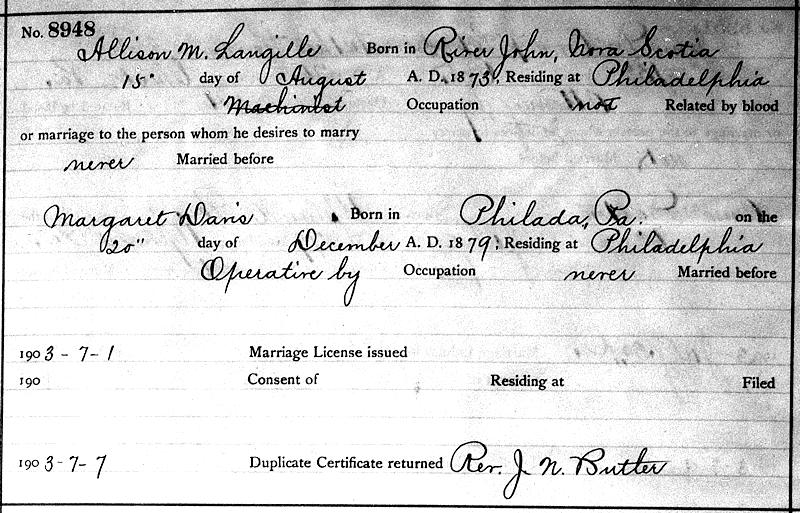 No. 8948
Allison M. Langille Born in River John, Nova Scotia
15" day of August A. D. 1873; Residing at Philadelphia
Machinist Occupation not Related by blood
or marriage to the person whom he desires to marry
never Married before
Margaret Davis Born in Philada, Pa. on the
20" day of December A. D. 1879; Residing at Philadelphia
Operative by Occupation never Married before
1903-7-1 Marriage License issued
190 Consent of Residing at Filed
1903-7-7 Duplicate Certificate returned Rev. J. N. Butler